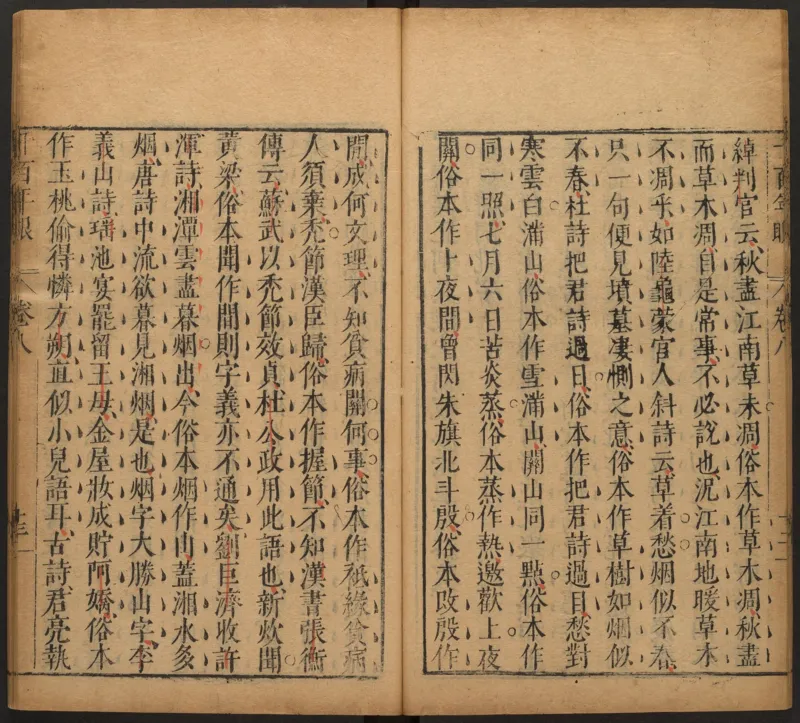 綽判官云秋盡江南草未凋俗本作草木凋秋盡
而草木凋自是常事不必說也況江南地暖草木
不凋乎如陸龜蒙宮人斜詩云草着愁烟似不春
只一句便見墳墓凄惻之意俗本作草樹如烟似
不春杜詩把君詩過日俗本作把君詩過目愁對
寒雲白滿山俗本作雪滿山關山同一點俗本作
同一照七月六日苦炎蒸俗本蒸作熱邀歡上夜
關俗本作卜夜間曾閃朱旗北斗殷俗本改殷作
閒成何文理不知貧病關何事俗本作祗緣貧病
人須棄禿節漢臣歸俗本作握節不知漢書張衡
傳云蘇武以禿節效貞杜公政用此語也新炊聞
黃梁俗本聞作間則字義亦不通矣劉巨濟收許
渾詩湘潭雲盡暮烟出今俗本烟作山蓋湘水多
烟唐詩中流欲暮見湘烟是也烟字大勝山字李
義山詩瑤池宴罷留王母金屋妝成貯阿嬌俗本
作玉桃偷得憐方朔直似小兒語耳古詩君亮執
卷八
卷八